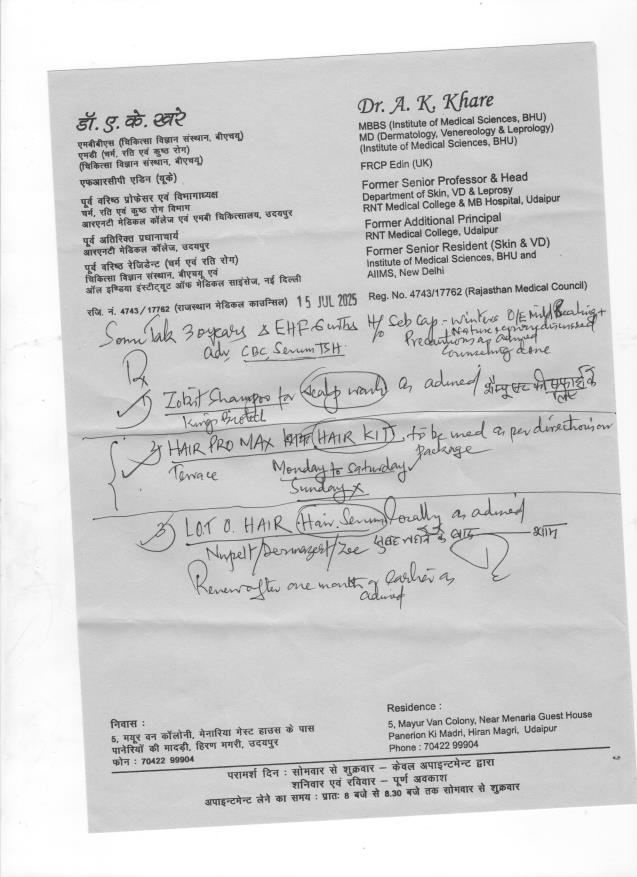 डॉ. ए. के. खरे
एमबीबीएस (चिकित्सा विज्ञान संस्थान, बीएचयू)
एमडी (चर्म, रति एवं कुष्ठ रोग)
(चिकित्सा विज्ञान संस्थान, बीएचयू)
एफआरसीपी एडिन (यूके)
पूर्व वरिष्ठ प्रोफेसर एवं विभागाध्यक्ष
चर्म, रति एवं कुष्ठ रोग विभाग
आरएनटी मेडिकल कॉलेज एवं एमबी चिकित्सालय, उदयपुर
पूर्व अतिरिक्त प्रधानाचार्य
आरएनटी मेडिकल कॉलेज, उदयपुर
पूर्व वरिष्ठ रेजिडेन्ट (चर्म एवं रति रोग)
चिकित्सा विज्ञान संस्थान, बीएचयू एवं
ऑल इण्डिया इंस्टीट्यूट ऑफ मेडिकल साइंसेज, नई दिल्ली
रजि. नं. 4743/17762 (राजस्थान मेडिकल काउन्सिल)
Dr. A. K. Khare
MBBS (Institute of Medical Sciences, BHU)
MD (Dermatology, Venereology & Leprology)
(Institute of Medical Sciences, BHU)
FRCP Edin (UK)
Former Senior Professor & Head
Department of Skin, VD & Leprosy
RNT Medical College & MB Hospital, Udaipur
Former Additional Principal
RNT Medical College, Udaipur
Former Senior Resident (Skin & VD)
Institute of Medical Sciences, BHU and
AIIMS, New Delhi
15 JUL 2025 Reg. No. 4743/17762 (Rajasthan Medical Council)
30 years EHF 6 mths H/o Seb Cap - winters O/E Mild
Nature discussed
adv CBC, Serum TSH Precautions advised
Counselling done
Rx
1) Shampoo for scalp wash as advised
2) HAIR PRO MAX HAIR KIT to be used as per directions on
package
Terrace Monday to Saturday
Sunday x
3) LOT O. HAIR Hair Serum locally as advised
सुबह नहाने के बाद शाम
Renew after one month or earlier as
advised
निवास :
5, मयूर वन कॉलोनी, मेनारिया गेस्ट हाउस के पास
पानेरियों की मादड़ी, हिरण मगरी, उदयपुर
फोन : 70422 99904
Residence :
5, Mayur Van Colony, Near Menaria Guest House
Panerion Ki Madri, Hiran Magri, Udaipur
Phone : 70422 99904
परामर्श दिन : सोमवार से शुक्रवार – केवल अपाइन्टमेन्ट द्वारा
शनिवार एवं रविवार – पूर्ण अवकाश
अपाइन्टमेन्ट लेने का समय : प्रातः 8 बजे से 8.30 बजे तक सोमवार से शुक्रवार